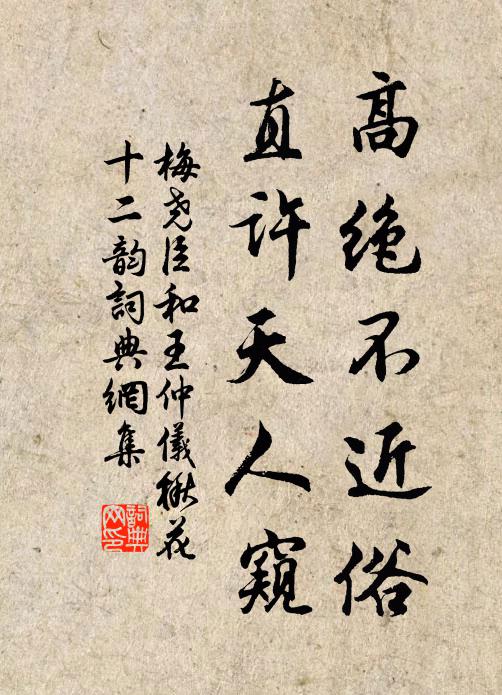 高絶不近俗
直许天人窺
梅尧臣和王仲儀楸花
十二韵詞典網集
詞典
网印